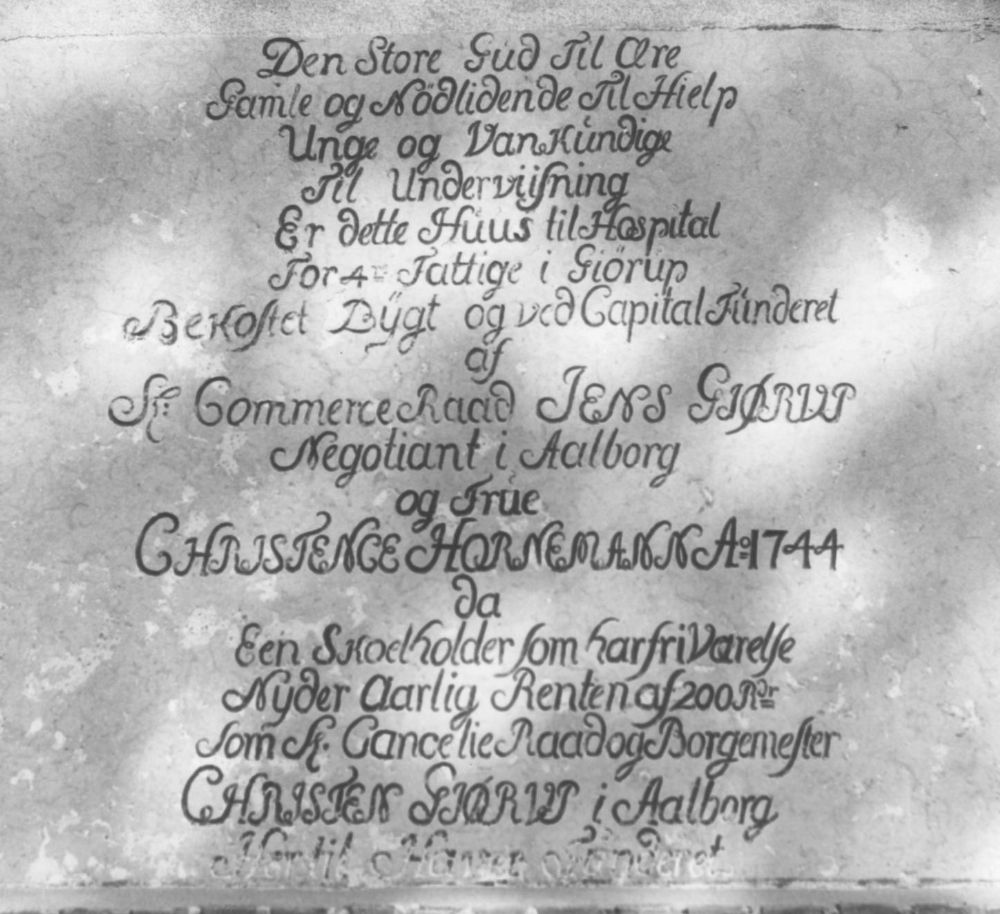 Den Store Gud Til Ære
Gamle og Nödlidende Til Hielp
Unge og Vankundige
Til Underviisning
Er dette Huus til Hospital
For 4re Fattige i Giörup
Bekostet Bÿgt og ved Capital Funderet
af
Sr. Commerce Raad JENS GIØRUP
Negotiant i Aalborg
og Frue
CHRISTENCE HORNEMANN Ao: 1744
da
Een Skoelholder som har fri Varelse
Nyder Aarlig Renten af 200 Rdr
som Sr. Cancelie Raad og Borgemester
CHRISTEN GIØRUP i Aalborg
Her til Haver Funderet